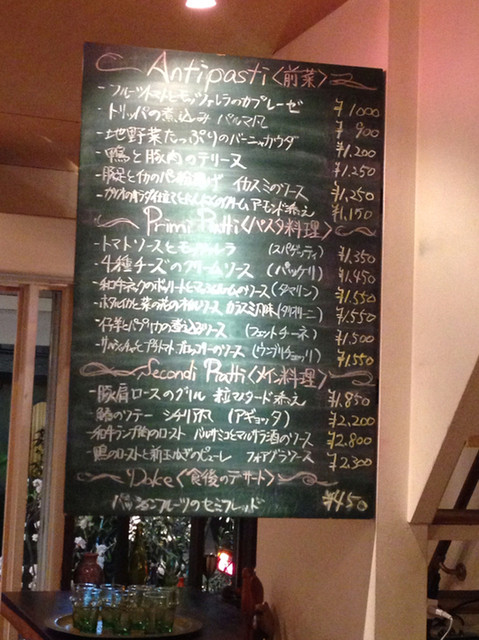 Antipasti〈前菜〉
-フルーツトマトとモッツァレラのカプレーゼ ¥1000
-トリッパの煮込み パルマ風 ¥900
-地野菜たっぷりのバーニャカウダ ¥1,200
-鴨と豚肉のテリーヌ ¥1,250
-豚足とイカのパン粉揚げ イカスミのソース ¥1,250
クリーム アーモンド添え ¥1,150
Primi Piatti〈パスタ料理〉
-トマトソースとモッツァレラ (スパゲッティ) ¥1,350
-4種チーズのクリームソース (パッケリ) ¥1,450
-和牛ネックのボロネーゼ ソース (タヤリン) ¥1,550
-ホタルイカと菜の花の ソース カラスミ風味 (タリオリーニ) ¥1,550
-仔羊とパプリカの煮込みソース (フェットチーネ) ¥1,500
ソース (ウンブリチェッリ) ¥1,550
Secondi Piatti〈メイン料理〉
-豚肩ロースのグリル 粒マスタード添え ¥1,850
-鰆のソテー シチリア風 (アギョッタ) ¥2,200
-和牛ランプ肉のロースト バルサミコとマルサラ酒のソース ¥2,800
-鴨のローストと新玉ねぎのピューレ フォアグラソース ¥2,300
Dolce〈食後のデザート〉
パッションフルーツのセミフレッド ¥450